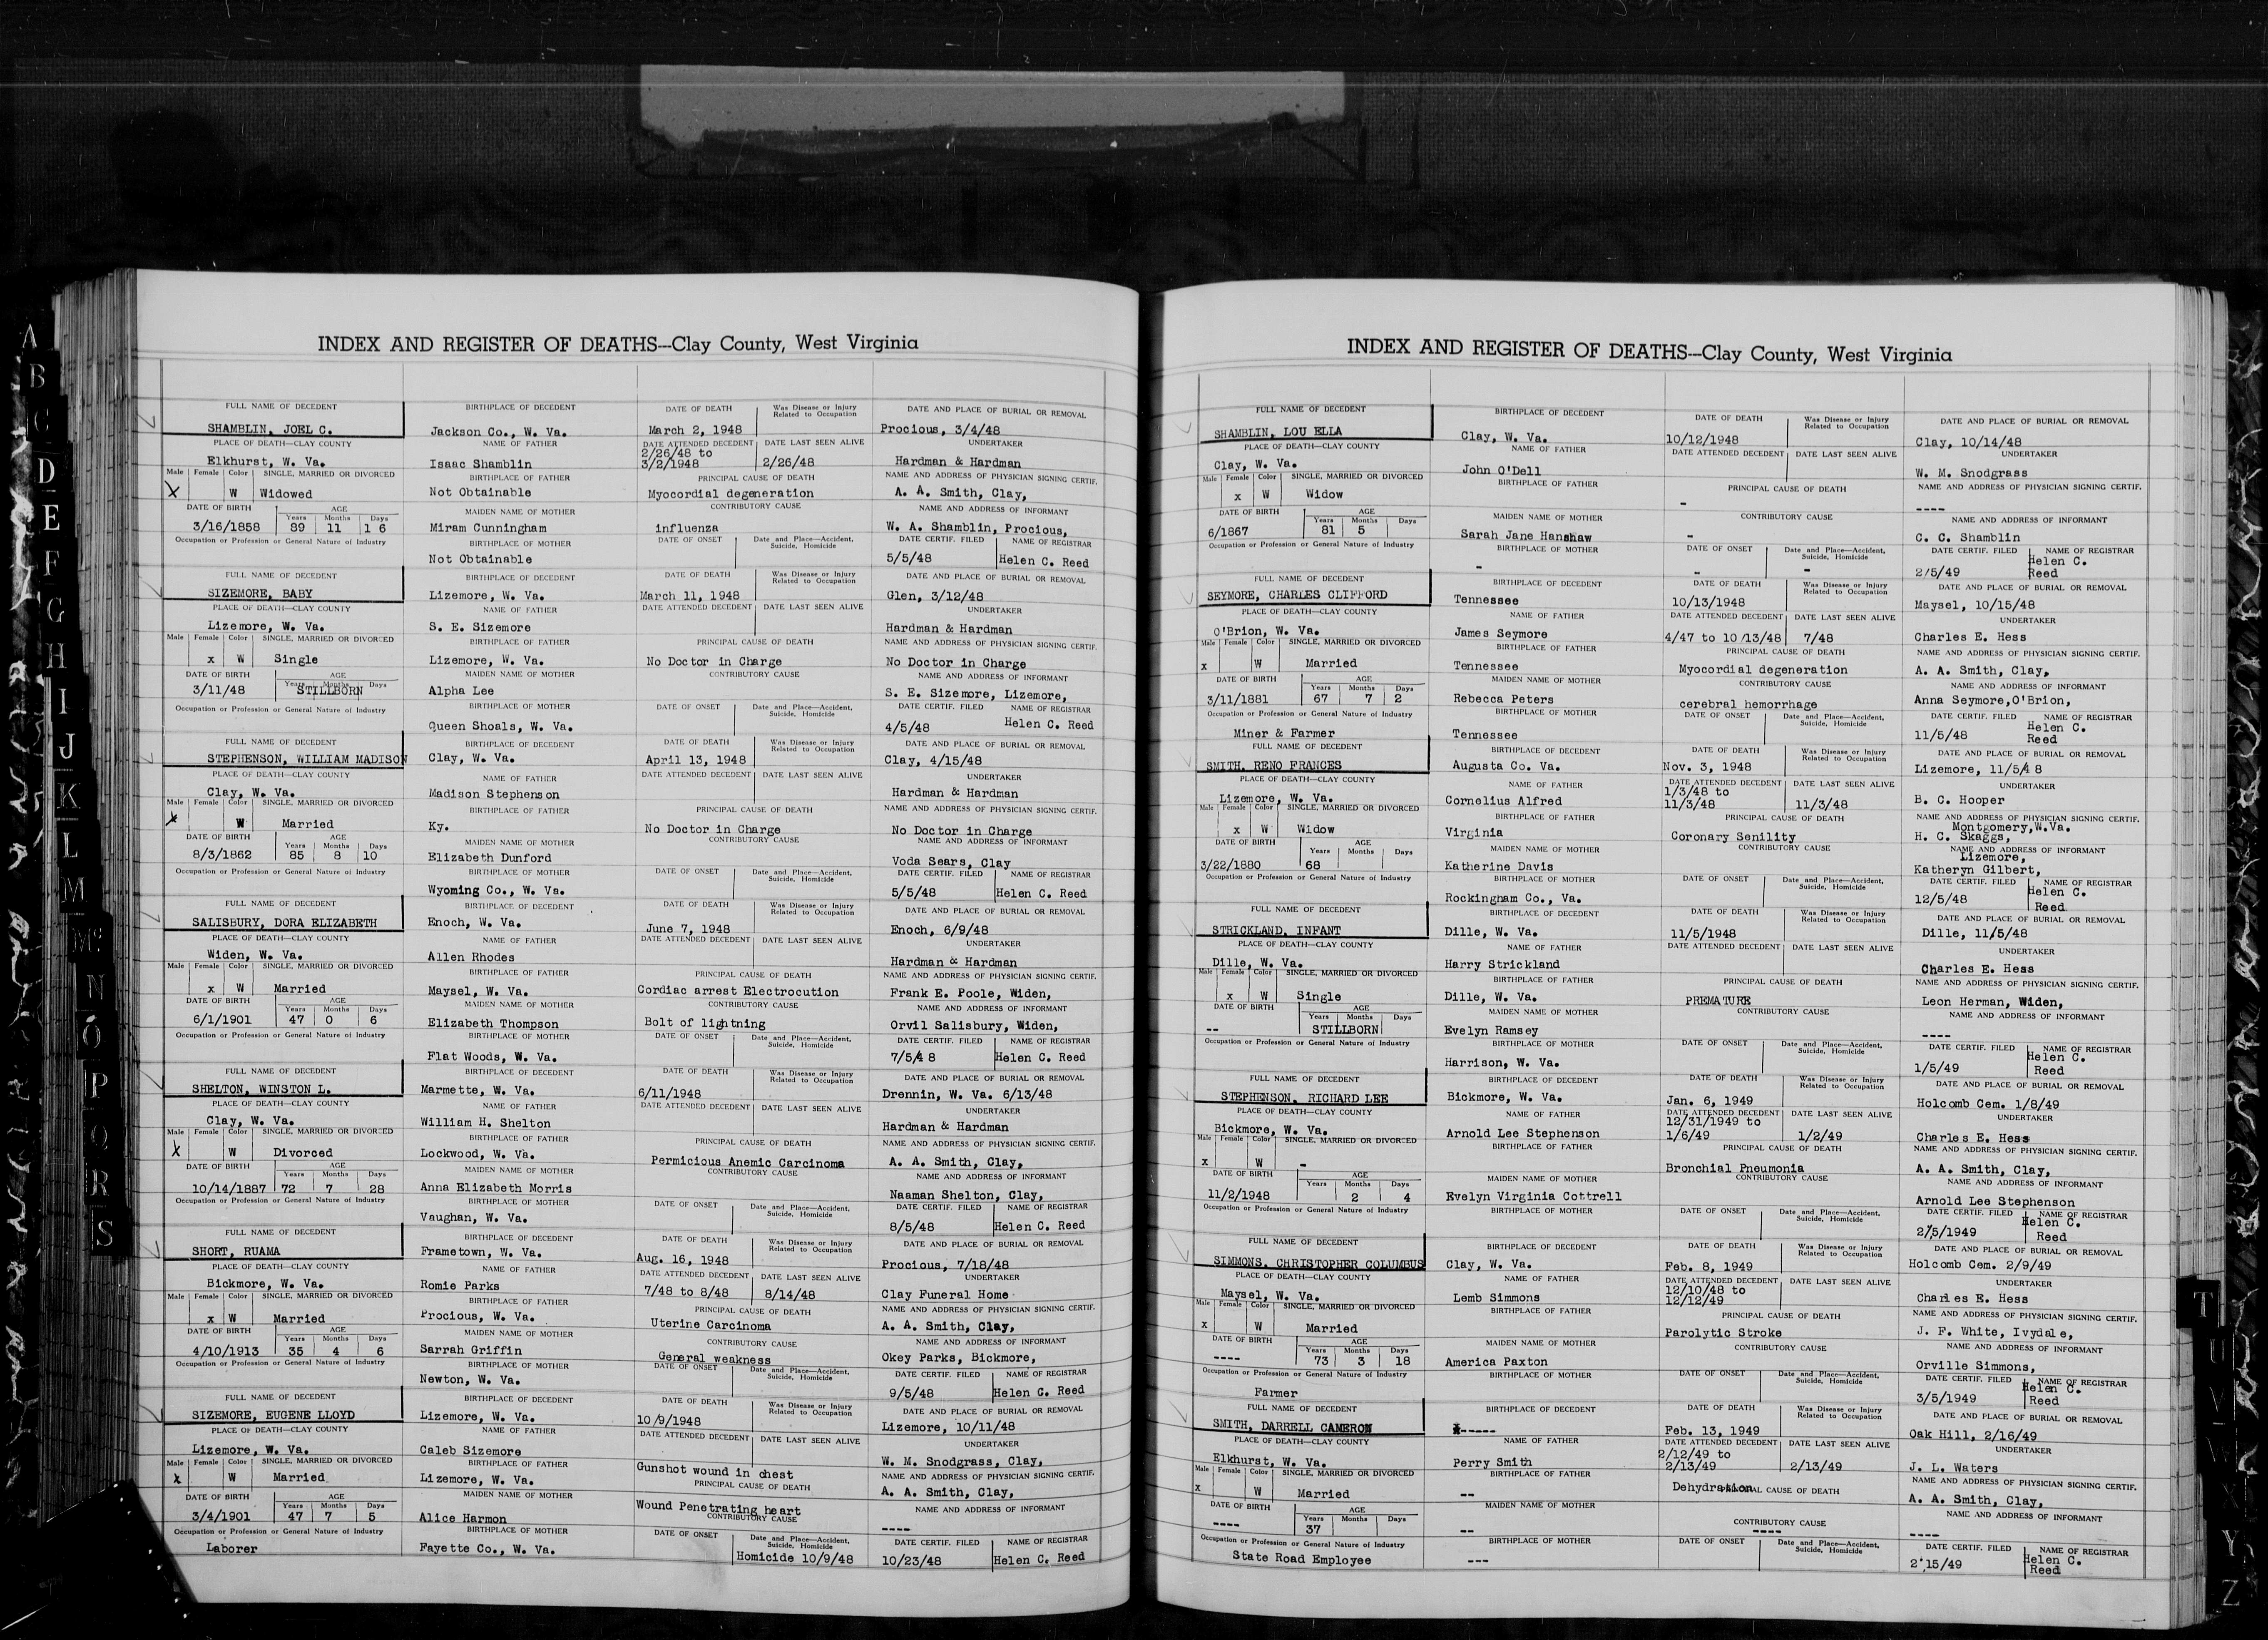 A
B
C
D
E
F
G
H
I
J
K
L
M
Mc
N
O
P
Q
R
S
INDEX AND REGISTER OF DEATHS---Clay County, West Virginia
FULL NAME OF DECEDENT BIRTHPLACE OF DECEDENT DATE OF DEATH Was Disease or Injury Related to Occupation DATE AND PLACE OF BURIAL OR REMOVAL
SHAMBLIN, JOEL C. Jackson Co., W. Va. March 2, 1948 Procious, 3/4/48
PLACE OF DEATH—CLAY COUNTY NAME OF FATHER DATE ATTENDED DECEDENT DATE LAST SEEN ALIVE UNDERTAKER
Elkhurst, W. Va. Isaac Shamblin 2/26/48 to 3/2/1948 2/26/48 Hardman & Hardman
Male Female Color SINGLE, MARRIED OR DIVORCED BIRTHPLACE OF FATHER PRINCIPAL CAUSE OF DEATH NAME AND ADDRESS OF PHYSICIAN SIGNING CERTIF.
X W Widowed Not Obtainable Myocordial degeneration A. A. Smith, Clay,
DATE OF BIRTH AGE Years Months Days MAIDEN NAME OF MOTHER CONTRIBUTORY CAUSE NAME AND ADDRESS OF INFORMANT
3/16/1858 89 11 1 6 Miram Cunningham influenza W. A. Shamblin, Procious,
Occupation or Profession or General Nature of Industry BIRTHPLACE OF MOTHER DATE OF ONSET Date and Place—Accident, Suicide, Homicide DATE CERTIF. FILED NAME OF REGISTRAR
Not Obtainable 5/5/48 Helen C. Reed
FULL NAME OF DECEDENT BIRTHPLACE OF DECEDENT DATE OF DEATH Was Disease or Injury Related to Occupation DATE AND PLACE OF BURIAL OR REMOVAL
SIZEMORE, BABY Lizemore, W. Va. March 11, 1948 Glen, 3/12/48
PLACE OF DEATH—CLAY COUNTY NAME OF FATHER DATE ATTENDED DECEDENT DATE LAST SEEN ALIVE UNDERTAKER
Lizemore, W. Va. S. E. Sizemore Hardman & Hardman
Male Female Color SINGLE, MARRIED OR DIVORCED BIRTHPLACE OF FATHER PRINCIPAL CAUSE OF DEATH NAME AND ADDRESS OF PHYSICIAN SIGNING CERTIF.
x W Single Lizemore, W. Va. No Doctor in Charge No Doctor in Charge
DATE OF BIRTH AGE Years Months Days MAIDEN NAME OF MOTHER CONTRIBUTORY CAUSE NAME AND ADDRESS OF INFORMANT
3/11/48 STILLBORN Alpha Lee S. E. Sizemore, Lizemore,
Occupation or Profession or General Nature of Industry BIRTHPLACE OF MOTHER DATE OF ONSET Date and Place—Accident, Suicide, Homicide DATE CERTIF. FILED NAME OF REGISTRAR
Queen Shoals, W. Va. 4/5/48 Helen C. Reed
FULL NAME OF DECEDENT BIRTHPLACE OF DECEDENT DATE OF DEATH Was Disease or Injury Related to Occupation DATE AND PLACE OF BURIAL OR REMOVAL
STEPHENSON, WILLIAM MADISON Clay, W. Va. April 13, 1948 Clay, 4/15/48
PLACE OF DEATH—CLAY COUNTY NAME OF FATHER DATE ATTENDED DECEDENT DATE LAST SEEN ALIVE UNDERTAKER
Clay, W. Va. Madison Stephenson Hardman & Hardman
Male Female Color SINGLE, MARRIED OR DIVORCED BIRTHPLACE OF FATHER PRINCIPAL CAUSE OF DEATH NAME AND ADDRESS OF PHYSICIAN SIGNING CERTIF.
X W Married Ky. No Doctor in Charge No Doctor in Charge
DATE OF BIRTH AGE Years Months Days MAIDEN NAME OF MOTHER CONTRIBUTORY CAUSE NAME AND ADDRESS OF INFORMANT
8/3/1862 85 8 10 Elizabeth Dunford Voda Sears, Clay
Occupation or Profession or General Nature of Industry BIRTHPLACE OF MOTHER DATE OF ONSET Date and Place—Accident, Suicide, Homicide DATE CERTIF. FILED NAME OF REGISTRAR
Wyoming Co., W. Va. 5/5/48 Helen C. Reed
FULL NAME OF DECEDENT BIRTHPLACE OF DECEDENT DATE OF DEATH Was Disease or Injury Related to Occupation DATE AND PLACE OF BURIAL OR REMOVAL
SALISBURY, DORA ELIZABETH Enoch, W. Va. June 7, 1948 Enoch, 6/9/48
PLACE OF DEATH—CLAY COUNTY NAME OF FATHER DATE ATTENDED DECEDENT DATE LAST SEEN ALIVE UNDERTAKER
Widen, W. Va. Allen Rhodes Hardman & Hardman
Male Female Color SINGLE, MARRIED OR DIVORCED BIRTHPLACE OF FATHER PRINCIPAL CAUSE OF DEATH NAME AND ADDRESS OF PHYSICIAN SIGNING CERTIF.
x W Married Maysel, W. Va. Cordiac arrest Electrocution Frank E. Poole, Widen,
DATE OF BIRTH AGE Years Months Days MAIDEN NAME OF MOTHER CONTRIBUTORY CAUSE NAME AND ADDRESS OF INFORMANT
6/1/1901 47 0 6 Elizabeth Thompson Bolt of lightning Orvil Salisbury, Widen,
Occupation or Profession or General Nature of Industry BIRTHPLACE OF MOTHER DATE OF ONSET Date and Place—Accident, Suicide, Homicide DATE CERTIF. FILED NAME OF REGISTRAR
Flat Woods, W. Va. 7/5/48 Helen C. Reed
FULL NAME OF DECEDENT BIRTHPLACE OF DECEDENT DATE OF DEATH Was Disease or Injury Related to Occupation DATE AND PLACE OF BURIAL OR REMOVAL
SHELTON, WINSTON L. Marmette, W. Va. 6/11/1948 Drennin, W. Va. 6/13/48
PLACE OF DEATH—CLAY COUNTY NAME OF FATHER DATE ATTENDED DECEDENT DATE LAST SEEN ALIVE UNDERTAKER
Clay, W. Va. William H. Shelton Hardman & Hardman
Male Female Color SINGLE, MARRIED OR DIVORCED BIRTHPLACE OF FATHER PRINCIPAL CAUSE OF DEATH NAME AND ADDRESS OF PHYSICIAN SIGNING CERTIF.
X W Divorced Lockwood, W. Va. Permicious Anemic Carcinoma A. A. Smith, Clay,
DATE OF BIRTH AGE Years Months Days MAIDEN NAME OF MOTHER CONTRIBUTORY CAUSE NAME AND ADDRESS OF INFORMANT
10/14/1887 72 7 28 Anna Elizabeth Morris Naaman Shelton, Clay,
Occupation or Profession or General Nature of Industry BIRTHPLACE OF MOTHER DATE OF ONSET Date and Place—Accident, Suicide, Homicide DATE CERTIF. FILED NAME OF REGISTRAR
Vaughan, W. Va. 8/5/48 Helen C. Reed
FULL NAME OF DECEDENT BIRTHPLACE OF DECEDENT DATE OF DEATH Was Disease or Injury Related to Occupation DATE AND PLACE OF BURIAL OR REMOVAL
SHORT, RUAMA Frametown, W. Va. Aug. 16, 1948 Procious, 7/18/48
PLACE OF DEATH—CLAY COUNTY NAME OF FATHER DATE ATTENDED DECEDENT DATE LAST SEEN ALIVE UNDERTAKER
Bickmore, W. Va. Romie Parks 7/48 to 8/48 8/14/48 Clay Funeral Home
Male Female Color SINGLE, MARRIED OR DIVORCED BIRTHPLACE OF FATHER PRINCIPAL CAUSE OF DEATH NAME AND ADDRESS OF PHYSICIAN SIGNING CERTIF.
x W Married Procious, W. Va. Uterine Carcinoma A. A. Smith, Clay,
DATE OF BIRTH AGE Years Months Days MAIDEN NAME OF MOTHER CONTRIBUTORY CAUSE NAME AND ADDRESS OF INFORMANT
4/10/1913 35 4 6 Sarrah Griffin General weakness Okey Parks, Bickmore,
Occupation or Profession or General Nature of Industry BIRTHPLACE OF MOTHER DATE OF ONSET Date and Place—Accident, Suicide, Homicide DATE CERTIF. FILED NAME OF REGISTRAR
Newton, W. Va. 9/5/48 Helen C. Reed
FULL NAME OF DECEDENT BIRTHPLACE OF DECEDENT DATE OF DEATH Was Disease or Injury Related to Occupation DATE AND PLACE OF BURIAL OR REMOVAL
SIZEMORE, EUGENE LLOYD Lizemore, W. Va. 10/9/1948 Lizemore, 10/11/48
PLACE OF DEATH—CLAY COUNTY NAME OF FATHER DATE ATTENDED DECEDENT DATE LAST SEEN ALIVE UNDERTAKER
Lizemore, W. Va. Caleb Sizemore W. M. Snodgrass, Clay,
Male Female Color SINGLE, MARRIED OR DIVORCED BIRTHPLACE OF FATHER Gunshot wound in chest PRINCIPAL CAUSE OF DEATH NAME AND ADDRESS OF PHYSICIAN SIGNING CERTIF.
X W Married Lizemore, W. Va. A. A. Smith, Clay,
DATE OF BIRTH AGE Years Months Days MAIDEN NAME OF MOTHER Wound Penetrating heart CONTRIBUTORY CAUSE NAME AND ADDRESS OF INFORMANT
3/4/1901 47 7 5 Alice Harmon ----
Occupation or Profession or General Nature of Industry BIRTHPLACE OF MOTHER DATE OF ONSET Date and Place—Accident, Suicide, Homicide DATE CERTIF. FILED NAME OF REGISTRAR
Laborer Fayette Co., W. Va. Homicide 10/9/48 10/23/48 Helen C. Reed
INDEX AND REGISTER OF DEATHS---Clay County, West Virginia
FULL NAME OF DECEDENT BIRTHPLACE OF DECEDENT DATE OF DEATH Was Disease or Injury Related to Occupation DATE AND PLACE OF BURIAL OR REMOVAL
SHAMBLIN, LOU ELLA Clay, W. Va. 10/12/1948 Clay, 10/14/48
PLACE OF DEATH—CLAY COUNTY NAME OF FATHER DATE ATTENDED DECEDENT DATE LAST SEEN ALIVE UNDERTAKER
Clay, W. Va. John O'Dell W. M. Snodgrass
Male Female Color SINGLE, MARRIED OR DIVORCED BIRTHPLACE OF FATHER PRINCIPAL CAUSE OF DEATH NAME AND ADDRESS OF PHYSICIAN SIGNING CERTIF.
x W Widow - ----
DATE OF BIRTH AGE Years Months Days MAIDEN NAME OF MOTHER CONTRIBUTORY CAUSE NAME AND ADDRESS OF INFORMANT
6/1867 81 5 Sarah Jane Hanshaw - C. C. Shamblin
Occupation or Profession or General Nature of Industry BIRTHPLACE OF MOTHER DATE OF ONSET Date and Place—Accident, Suicide, Homicide DATE CERTIF. FILED NAME OF REGISTRAR
- - - 2/5/49 Helen C. Reed
FULL NAME OF DECEDENT BIRTHPLACE OF DECEDENT DATE OF DEATH Was Disease or Injury Related to Occupation DATE AND PLACE OF BURIAL OR REMOVAL
SEYMORE, CHARLES CLIFFORD Tennessee 10/13/1948 Maysel, 10/15/48
PLACE OF DEATH—CLAY COUNTY NAME OF FATHER DATE ATTENDED DECEDENT DATE LAST SEEN ALIVE UNDERTAKER
O'Brion, W. Va. James Seymore 4/47 to 10/13/48 7/48 Charles E. Hess
Male Female Color SINGLE, MARRIED OR DIVORCED BIRTHPLACE OF FATHER PRINCIPAL CAUSE OF DEATH NAME AND ADDRESS OF PHYSICIAN SIGNING CERTIF.
x W Married Tennessee Myocordial degeneration A. A. Smith, Clay,
DATE OF BIRTH AGE Years Months Days MAIDEN NAME OF MOTHER CONTRIBUTORY CAUSE NAME AND ADDRESS OF INFORMANT
3/11/1881 67 7 2 Rebecca Peters cerebral hemorrhage Anna Seymore,O'Brion,
Occupation or Profession or General Nature of Industry BIRTHPLACE OF MOTHER DATE OF ONSET Date and Place—Accident, Suicide, Homicide DATE CERTIF. FILED NAME OF REGISTRAR
Miner & Farmer Tennessee 11/5/48 Helen C. Reed
FULL NAME OF DECEDENT BIRTHPLACE OF DECEDENT DATE OF DEATH Was Disease or Injury Related to Occupation DATE AND PLACE OF BURIAL OR REMOVAL
SMITH, RENO FRANCES Augusta Co. Va. Nov. 3, 1948 Lizemore, 11/5/48
PLACE OF DEATH—CLAY COUNTY NAME OF FATHER DATE ATTENDED DECEDENT DATE LAST SEEN ALIVE UNDERTAKER
Lizemore, W. Va. Cornelius Alfred 1/3/48 to 11/3/48 11/3/48 B. C. Hooper
Male Female Color SINGLE, MARRIED OR DIVORCED BIRTHPLACE OF FATHER PRINCIPAL CAUSE OF DEATH NAME AND ADDRESS OF PHYSICIAN SIGNING CERTIF.
x W Widow Virginia Coronary Senility Montgomery,W.Va. H. C. Skaggs,
DATE OF BIRTH AGE Years Months Days MAIDEN NAME OF MOTHER CONTRIBUTORY CAUSE NAME AND ADDRESS OF INFORMANT
3/22/1880 68 Katherine Davis Lizemore, Katheryn Gilbert,
Occupation or Profession or General Nature of Industry BIRTHPLACE OF MOTHER DATE OF ONSET Date and Place—Accident, Suicide, Homicide DATE CERTIF. FILED NAME OF REGISTRAR
Rockingham Co., Va. 12/5/48 Helen C. Reed
FULL NAME OF DECEDENT BIRTHPLACE OF DECEDENT DATE OF DEATH Was Disease or Injury Related to Occupation DATE AND PLACE OF BURIAL OR REMOVAL
STRICKLAND, INFANT Dille, W. Va. 11/5/1948 Dille, 11/5/48
PLACE OF DEATH—CLAY COUNTY NAME OF FATHER DATE ATTENDED DECEDENT DATE LAST SEEN ALIVE UNDERTAKER
Dille, W. Va. Harry Strickland Charles E. Hess
Male Female Color SINGLE, MARRIED OR DIVORCED BIRTHPLACE OF FATHER PRINCIPAL CAUSE OF DEATH NAME AND ADDRESS OF PHYSICIAN SIGNING CERTIF.
x W Single Dille, W. Va. PREMATURE Leon Herman, Widen,
DATE OF BIRTH AGE Years Months Days MAIDEN NAME OF MOTHER CONTRIBUTORY CAUSE NAME AND ADDRESS OF INFORMANT
-- STILLBORN Evelyn Ramsey ----
Occupation or Profession or General Nature of Industry BIRTHPLACE OF MOTHER DATE OF ONSET Date and Place—Accident, Suicide, Homicide DATE CERTIF. FILED NAME OF REGISTRAR
Harrison, W. Va. 1/5/49 Helen C. Reed
FULL NAME OF DECEDENT BIRTHPLACE OF DECEDENT DATE OF DEATH Was Disease or Injury Related to Occupation DATE AND PLACE OF BURIAL OR REMOVAL
STEPHENSON, RICHARD LEE Bickmore, W. Va. Jan. 6, 1949 Holcomb Cem. 1/8/49
PLACE OF DEATH—CLAY COUNTY NAME OF FATHER DATE ATTENDED DECEDENT DATE LAST SEEN ALIVE UNDERTAKER
Bickmore, W. Va. Arnold Lee Stephenson 12/31/1949 to 1/6/49 1/2/49 Charles E. Hess
Male Female Color SINGLE, MARRIED OR DIVORCED BIRTHPLACE OF FATHER PRINCIPAL CAUSE OF DEATH NAME AND ADDRESS OF PHYSICIAN SIGNING CERTIF.
x W - Bronchial Pneumonia A. A. Smith, Clay,
DATE OF BIRTH AGE Years Months Days MAIDEN NAME OF MOTHER CONTRIBUTORY CAUSE NAME AND ADDRESS OF INFORMANT
11/2/1948 2 4 Evelyn Virginia Cottrell Arnold Lee Stephenson
Occupation or Profession or General Nature of Industry BIRTHPLACE OF MOTHER DATE OF ONSET Date and Place—Accident, Suicide, Homicide DATE CERTIF. FILED NAME OF REGISTRAR
2/5/1949 Helen C. Reed
FULL NAME OF DECEDENT BIRTHPLACE OF DECEDENT DATE OF DEATH Was Disease or Injury Related to Occupation DATE AND PLACE OF BURIAL OR REMOVAL
SIMMONS, CHRISTOPHER COLUMBUS Clay, W. Va. Feb. 8, 1949 Holcomb Cem. 2/9/49
PLACE OF DEATH—CLAY COUNTY NAME OF FATHER DATE ATTENDED DECEDENT DATE LAST SEEN ALIVE UNDERTAKER
Maysel, W. Va. Lemb Simmons 12/10/48 to 12/12/49 Charles E. Hess
Male Female Color SINGLE, MARRIED OR DIVORCED BIRTHPLACE OF FATHER PRINCIPAL CAUSE OF DEATH NAME AND ADDRESS OF PHYSICIAN SIGNING CERTIF.
x W Married Parolytic Stroke J. F. White, Ivydale,
DATE OF BIRTH AGE Years Months Days MAIDEN NAME OF MOTHER CONTRIBUTORY CAUSE NAME AND ADDRESS OF INFORMANT
---- 73 3 18 America Paxton Orville Simmons,
Occupation or Profession or General Nature of Industry BIRTHPLACE OF MOTHER DATE OF ONSET Date and Place—Accident, Suicide, Homicide DATE CERTIF. FILED NAME OF REGISTRAR
Farmer 3/5/1949 Helen C. Reed
FULL NAME OF DECEDENT BIRTHPLACE OF DECEDENT DATE OF DEATH Was Disease or Injury Related to Occupation DATE AND PLACE OF BURIAL OR REMOVAL
SMITH, DARRELL CAMERON ----- Feb. 13, 1949 Oak Hill, 2/16/49
PLACE OF DEATH—CLAY COUNTY NAME OF FATHER DATE ATTENDED DECEDENT DATE LAST SEEN ALIVE UNDERTAKER
Elkhurst, W. Va. Perry Smith 2/12/49 to 2/13/49 2/13/49 J. L. Waters
Male Female Color SINGLE, MARRIED OR DIVORCED BIRTHPLACE OF FATHER Dehydration PRINCIPAL CAUSE OF DEATH NAME AND ADDRESS OF PHYSICIAN SIGNING CERTIF.
x W Married -- A. A. Smith, Clay,
DATE OF BIRTH AGE Years Months Days MAIDEN NAME OF MOTHER CONTRIBUTORY CAUSE NAME AND ADDRESS OF INFORMANT
---- 37 -- ---- ----
Occupation or Profession or General Nature of Industry BIRTHPLACE OF MOTHER DATE OF ONSET Date and Place—Accident, Suicide, Homicide DATE CERTIF. FILED NAME OF REGISTRAR
State Road Employee --- 2/15/49 Helen C. Reed
T
U
V
W
X
Y
Z